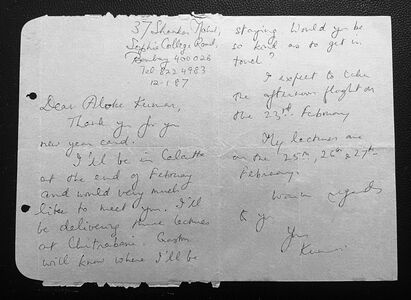 37 Shankar Mahal,
Sophia College Road,
Bombay 400026
Tel: 822 4983
12-1-87
Dear Aloke Kumar,
Thank you for your
new year card.
I'll be in Calcutta
at the end of February
and would very much
like to meet you. I'll
be delivering three lectures
at Chitrabani. Gaston
will know where I'll be
staying. Would you be
so kind as to get in
touch?
I expect to take
the afternoon flight on
the 23rd February
My lectures are
on the 25th, 26th & 27th
February.
Warm regards
to you
Yours